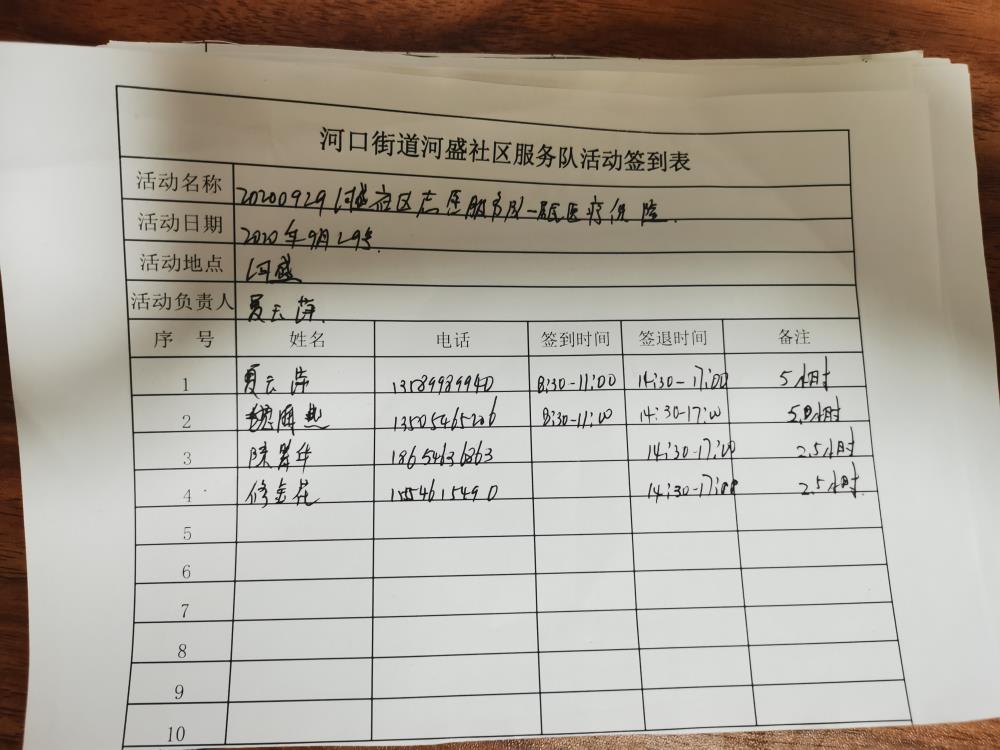 河口街道河盛社区服务队活动签到表
活动名称 20200929河盛社区志愿服务队—居民医疗保险
活动日期 2020年9月29号
活动地点 河盛
活动负责人 夏云萍
序 号 姓名 电话 签到时间 签退时间 备注
1 夏云萍 13589989940 8:30-11:00 14:30-17:00 5小时
2 13505465206 8:30-11:00 14:30-17:00 5.0小时
3 18654636863 14:30-17:00 2.5小时
4 修金花 14:30-17:00 2.5小时
5
6
7
8
9
10